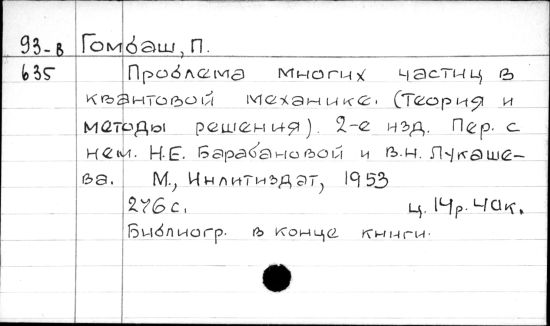 93-в Гомбаш, П.
635 Проблема многих частиц в
квантовой механике. (Теория и
методы решения). 2-е изд. Пер. с
нем. Н.Е. Барабановой и В.Н. Лукаше-
ва. М., Инлитиздат, 1953
276 с. ц. 14р. 40к.
Библиогр. в конце книги.